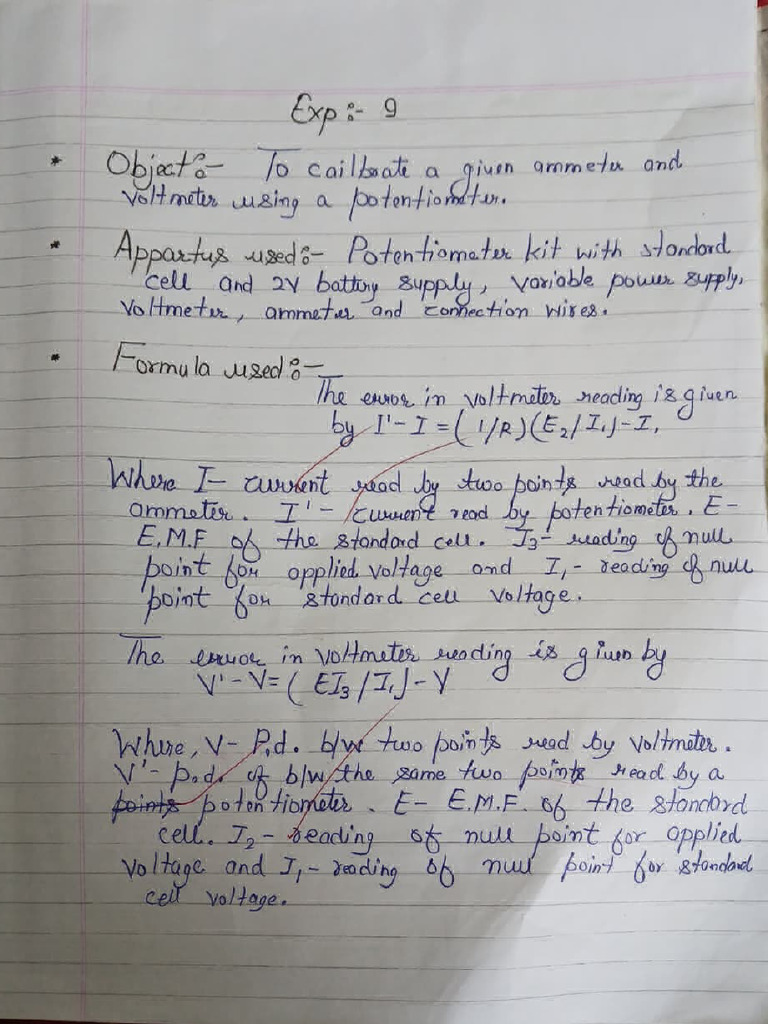 Exp :- 9
* Object :- To cailbrate a given ammeter and
voltmeter using a potentiometer.
* Appartus used :- Potentiometer kit with standard
cell and 2V battery supply, variable power supply,
voltmeter, ammeter and connection wires.
* Formula used :-
The error in voltmeter reading is given
by I' - I = ( 1/R)(E2/I1) - I,
Where I - current read by two points read by the
ammeter. I' - current read by potentiometer. E -
E.M.F of the standard cell. I3 - reading of null
point for applied voltage and I1 - reading of null
point for standard cell voltage.
The error in voltmeter reading is given by
V' - V = ( EI3 / I1) - V
Where, V - P.d. b/w two points read by voltmeter.
V' - p.d. of b/w the same two points read by a
points potentiometer. E - E.M.F. of the standard
cell. I2 - reading of null point for applied
voltage and I1 - reading of null point for standard
cell voltage.